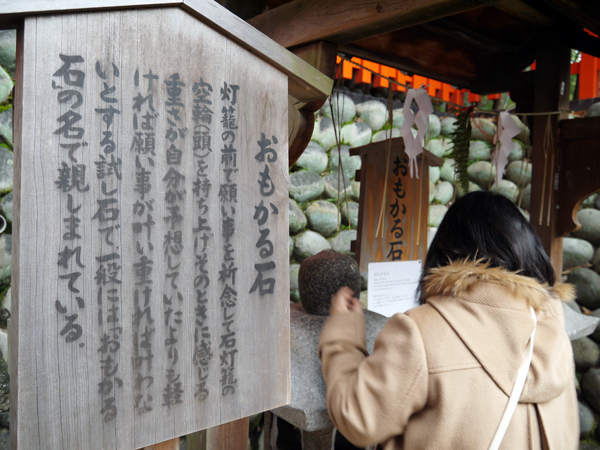 おもかる石
灯籠の前で願い事を祈念して石灯籠の
空輪(頭)を持ち上げ、そのときに感じる
重さが、自分が予想していたよりも軽
ければ願い事が叶い、重ければ叶わな
いとする試し石で、一般には「おもかる
石」の名で親しまれている。
おもかる石